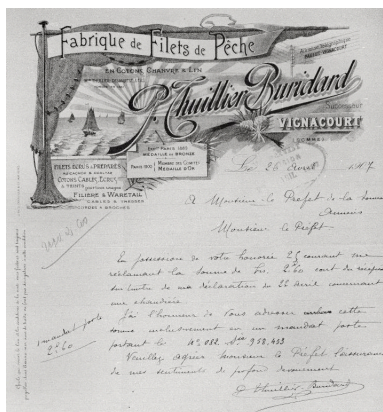 Fabrique de Filets de Pêche
EN COTONS, CHANVRE & LIN
P. Thuillier-Buridard
Successeur
VIGNACOURT
(SOMME)
EXP. PARIS 1889
MÉDAILLE DE BRONZE
PARIS 1900
MÉDAILLE D'OR
FILETS ÉCRUS & PRÉPARÉS
COTONS CÂBLÉS, ÉCRUS
& TEINTS
FILIÈRE & WARETAIL
CABLES &
CORDES & BROCHES
Le 26 1907
A Monsieur le Préfet de la Somme
Amiens
Monsieur le Préfet
En possession de votre honorée 25 courant me
réclamant la somme de frs. 2.60 cout du récépissé
de ma déclaration du 22 avril concernant
une chaudière.
J'ai l'honneur de vous adresser cette
somme inclusivement en un mandat poste
portant le N° 052.
Veuillez agréer Monsieur le Préfet l'assurance
de mes sentiments de profond dévouement
P. Thuillier-Buridard
1 mandat poste
2.60